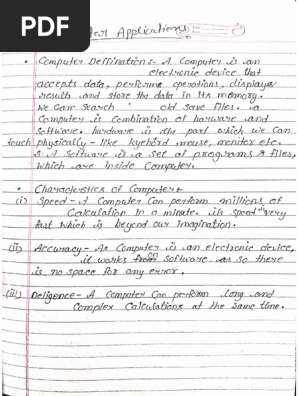 PDF
ter Applications
• Computer Deffination:- A Computer is an
electronic device that
accepts data, performs operations, displays
results and store the data in its memory.
We can search old save files. a
Computer is Combination of harware and
Software. hardware is the part which we can
touch physically - like kyebord, mouse, monitor etc.
& A Software is a set of programs & files,
Which are inside Computer.
• Characteristics of Computer
(i) Speed - A Computer Can Perform millions of
Calculation in a minute. its speed very
fast which is beyond our imagination.
(ii) Accuracy - As Computer is an electronic device,
it works from Software as so there
is no space for any error.
(iii) Deligence - A Computer Can perform long and
Complex Calculations at the same time.